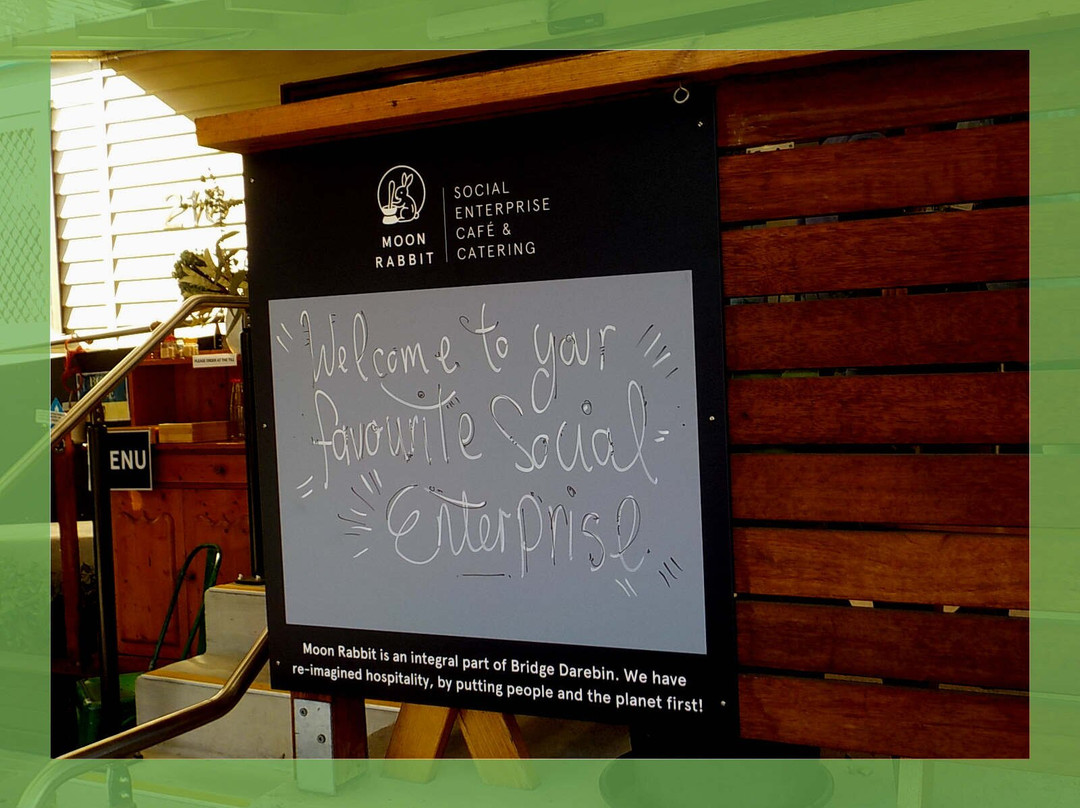 MOON
RABBIT
SOCIAL
ENTERPRISE
CAFÉ &
CATERING
Welcome to your
favourite Social
Enterprise.
Moon Rabbit is an integral part of Bridge Darebin. We have
re-imagined hospitality, by putting people and the planet first!
ENU
PLEASE ORDER AT THE TILL